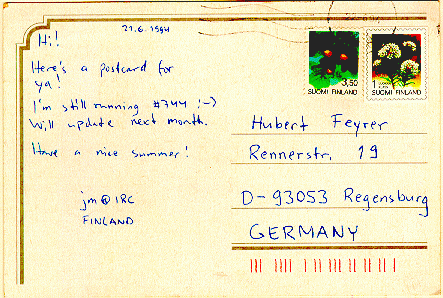 21.6.1994
Hi!
Here's a postcard for
ya!
I'm still running #744 :-)
Will update next month.
Have a nice summer!
jm@IRC
FINLAND
3,50
SUOMI FINLAND
1
SUOMI FINLAND
Hubert Feyrer
Rennerstr. 19
D-93053 Regensburg
GERMANY